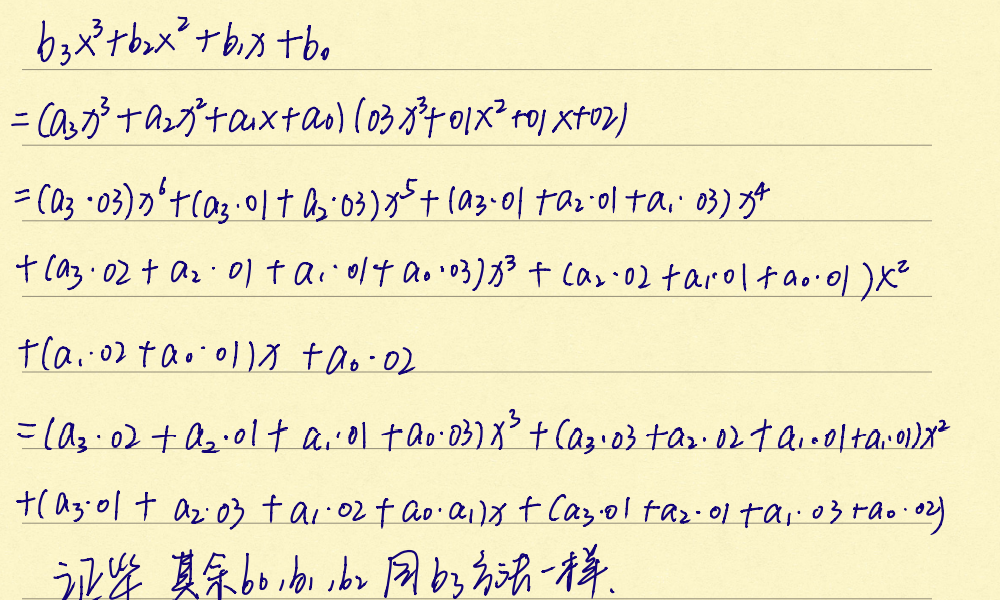 b₃x³+b₂x²+b₁x+b₀
=(a₃x³+a₂x²+a₁x+a₀)(03x³+01x²+01x+02)
=(a₃·03)x⁶+(a₃·01+a₂·03)x⁵+(a₃·01+a₂·01+a₁·03)x⁴
+(a₃·02+a₂·01+a₁·01+a₀·03)x³+(a₂·02+a₁·01+a₀·01)x²
+(a₁·02+a₀·01)x+a₀·02
=(a₃·02+a₂·01+a₁·01+a₀·03)x³+(a₃·03+a₂·02+a₁·01+a₁·01)x²
+(a₃·01+a₂·03+a₁·02+a₀·a₁)x+(a₃·01+a₂·01+a₁·03+a₀·02)
证毕 其余b₀,b₁,b₂同b₃方法一样.